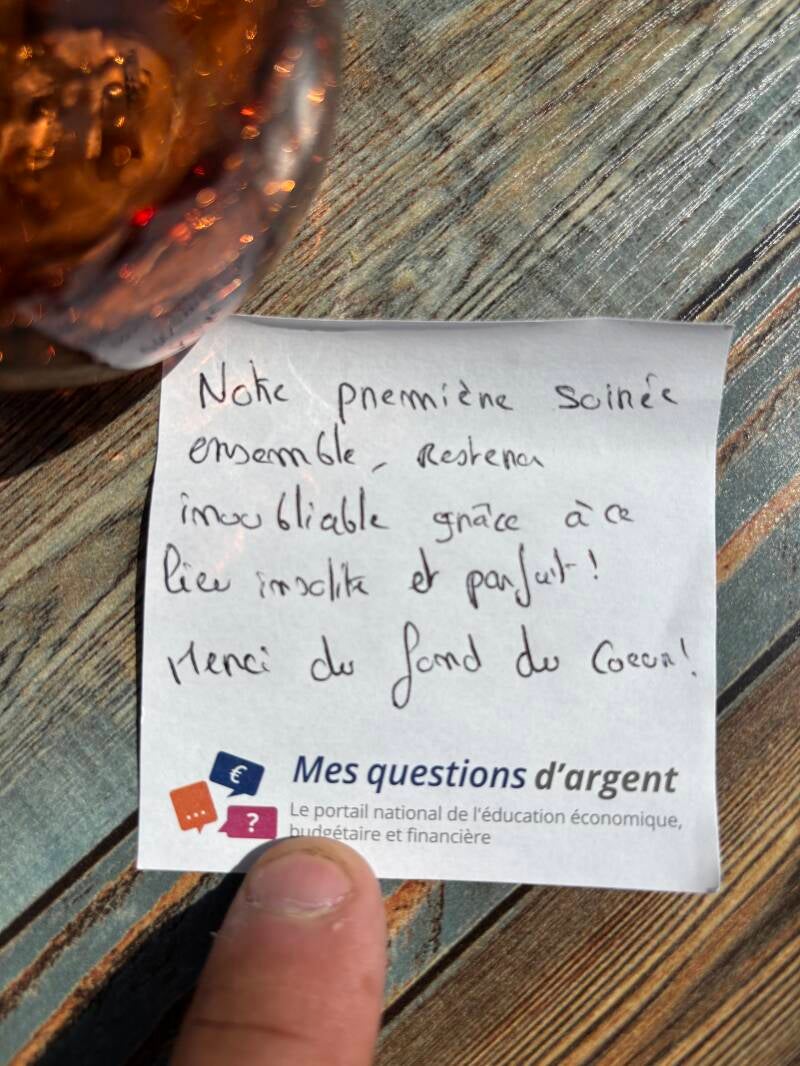 Notre première soirée
ensemble, Restera
inoubliable grâce à ce
lieu insolite et parfait !
Merci du fond du Coeur !
€
...
?
Mes questions d'argent
Le portail national de l'éducation économique,
budgétaire et financière